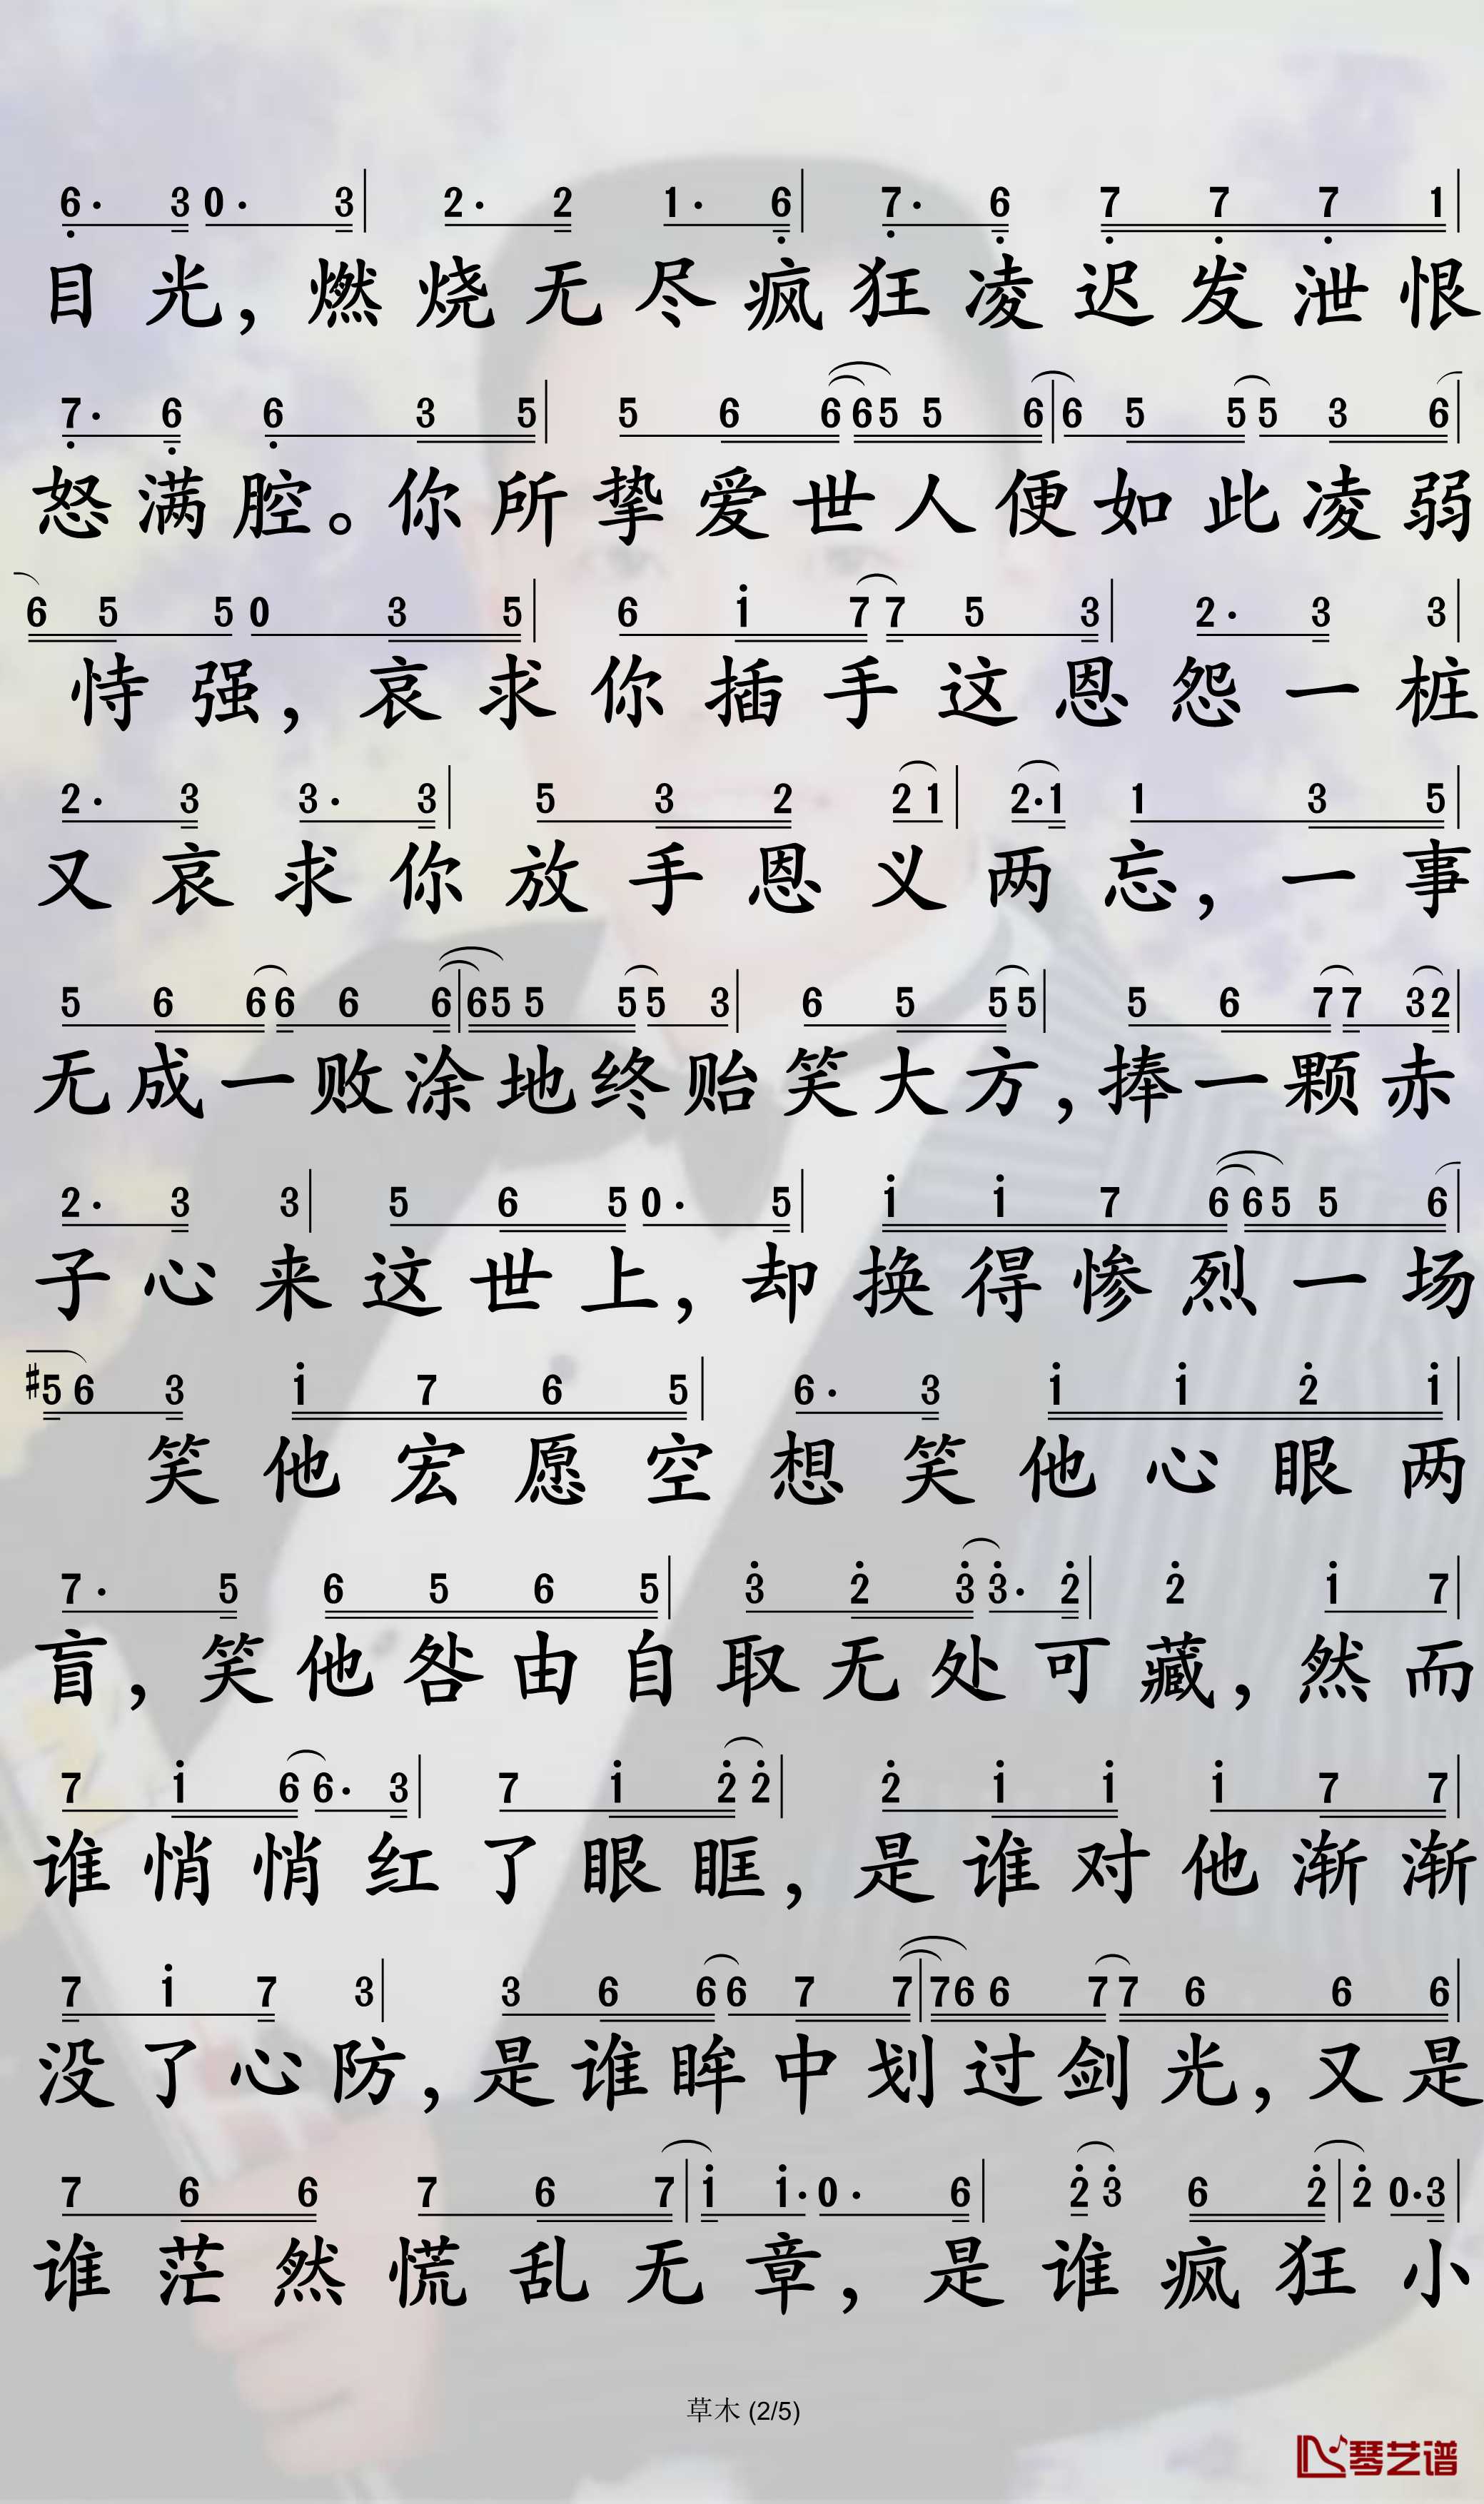 6· 3 0· 3| 2· 2 1· 6| 7· 6 7 7 7 1|
目光，燃烧无尽疯狂凌迟发泄恨
7· 6 6 3 5| 5 6 6 6 5 5 6|6 5 5 5 3 6|
怒满腔。你所挚爱世人便如此凌弱
6 5 5 0 3 5| 6 i 7 7 5 3| 2· 3 3|
恃强，哀求你插手这恩怨一桩
2· 3 3· 3| 5 3 2 2 1| 2·1 1 3 5|
又哀求你放手恩义两忘，一事
5 6 6 6 6 6|6 5 5 5 5 3| 6 5 5 5| 5 6 7 7 3 2|
无成一败涂地终贻笑大方，捧一颗赤
2· 3 3| 5 6 5 0· 5| i i 7 6 6 5 5 6|
子心来这世上，却换得惨烈一场
#5 6 3 i 7 6 5| 6· 3 i i 2 i|
笑他宏愿空想笑他心眼两
7· 5 6 5 6 5| 3 2 3 3· 2| 2 i 7|
盲，笑他咎由自取无处可藏，然而
7 i 6 6· 3| 7 i 2 2| 2 i i i 7 7|
谁悄悄红了眼眶，是谁对他渐渐
7 i 7 3| 3 6 6 6 7 7|7 6 6 7 7 6 6 6|
没了心防，是谁眸中划过剑光，又是
7 6 6 7 6 7|i i· 0· 6| 2 3 6 2|2 0·3|
谁茫然慌乱无章，是谁疯狂小
草木 (2/5)
琴艺谱